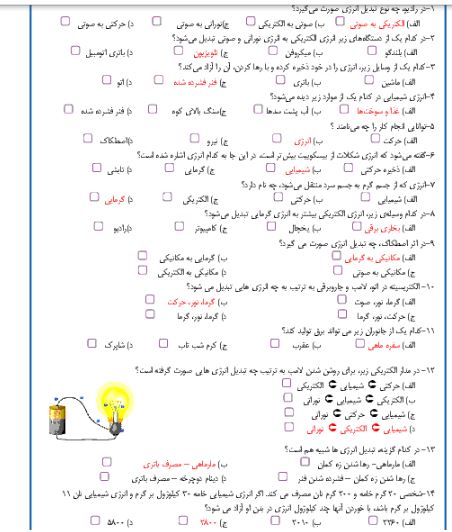 ۱–در رادیو، چه نوع تبدیل انرژی صورت می‌گیرد؟
الف) الکتریکی به صوتی ب) صوتی به الکتریکی ج)نورانی به صوتی د) حرکتی به صوتی
۲–در کدام یک از دستگاه‌های زیر انرژی الکتریکی به انرژی نورانی و صوتی تبدیل می‌شود؟
الف) بلندگو ب) میکروفن ج) تلویزیون د) باتری اتومبیل
۳–کدام یک از وسایل زیر، انرژی را در خود ذخیره کرده و با رها کردن، آن را آزاد می‌کند؟
الف) ماشین ب) باتری ج) فنر فشرده شده د) اتو
۴–انرژی شیمیایی در کدام یک از موارد زیر دیده می‌شود؟
الف) غذا و سوخت‌ها ب) آب پشت سدها ج)سنگ بالای کوه د) فنر فشرده شده
۵–توانایی انجام کار را چه می‌نامند ؟
الف) حرکت ب) انرژی ج) نیرو د)اصطکاک
۶–گفته می‌شود که انرژی شکلات از بیسکوییت بیش‌تر است. در این جا به کدام انرژی اشاره شده است؟
الف) ذخیره حرکتی ب) شیمیایی ج) گرمایی د) تابشی
۷–انرژی که از جسم گرم به جسم سرد منتقل می‌شود، چه نام دارد؟
الف) شیمیایی ب) حرکتی ج) الکتریکی د) گرمایی
۸–در کدام وسیله‌ی زیر، انرژی الکتریکی بیشتر به انرژی گرمایی تبدیل می‌شود؟
الف) بخاری برقی ب) یخچال ج) کامپیوتر د)رادیو
۹–در اثر اصطکاک، چه تبدیل انرژی صورت می گیرد؟
الف) مکانیکی به گرمایی ب) گرمایی به مکانیکی
ج) مکانیکی به صوتی د) مکانیکی به الکتریکی
۱۰–الکتریسیته در اتو، لامپ و جاروبرقی به ترتیب به چه انرژی هایی تبدیل می شود؟
الف) گرما، نور، صوت ب) گرما، نور، حرکت
ج) حرکت، نور، گرما د) گرما، نور، گرما
۱۱–کدام یک از جانوران زیر می تواند برق تولید کند؟
الف) سفره ماهی ب) عقرب ج) کرم شب تاب د) شاپرک
۱۲– در مدار الکتریکی زیر، برای روشن شدن لامپ به ترتیب چه تبدیل انرژی هایی صورت گرفته است؟
الف) حرکتی شیمیایی الکتریکی
ب) الکتریکی شیمیایی نورانی
ج) شیمیایی حرکتی نورانی
د) شیمیایی الکتریکی نورانی
۱۳– در کدام گزینه، تبدیل انرژی ها شبیه هم است؟
الف) مارماهی– رها شدن زه کمان ب) مارماهی – مصرف باتری
ج) رها شدن زه کمان – فشرده شدن فنر د) دینام دوچرخه – مصرف باتری
۱۴–شخصی ۲۰ گرم خامه و ۲۰۰ گرم نان مصرف می کند. اگر انرژی شیمیایی خامه ۳۰ کیلوژول بر گرم و انرژی شیمیایی نان ۱۱
کیلوژول بر گرم باشد، با خوردن آنها چند کیلوژول انرژی در بدن او آزاد می شود؟
الف) ۲۲۶۰ ب) ۲۰۱۰ ج) ۲۸۰۰ د) ۵۸۰۰